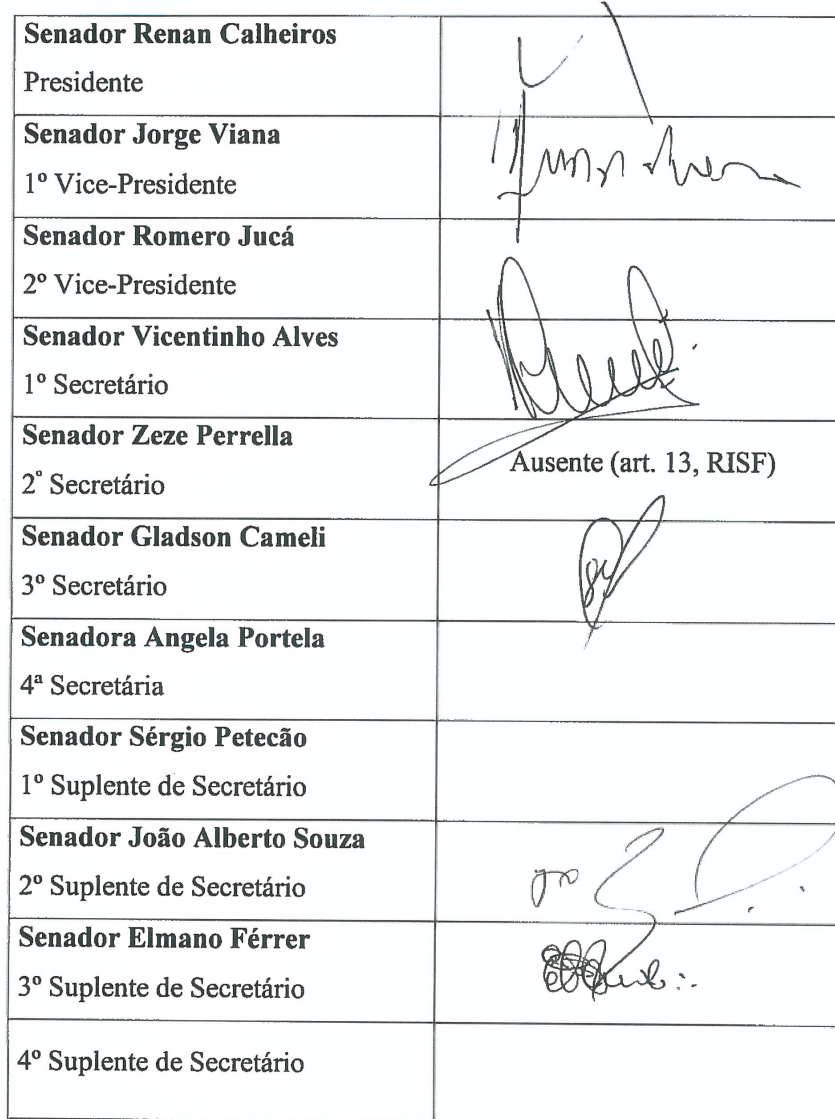 Senador Renan Calheiros
Presidente
Senador Jorge Viana
1º Vice-Presidente
Senador Romero Jucá
2º Vice-Presidente
Senador Vicentinho Alves
1º Secretário
Senador Zeze Perrella
2º Secretário
Ausente (art. 13, RISF)
Senador Gladson Cameli
3º Secretário
Senadora Angela Portela
4ª Secretária
Senador Sérgio Petecão
1º Suplente de Secretário
Senador João Alberto Souza
2º Suplente de Secretário
Senador Elmano Férrer
3º Suplente de Secretário
4º Suplente de Secretário